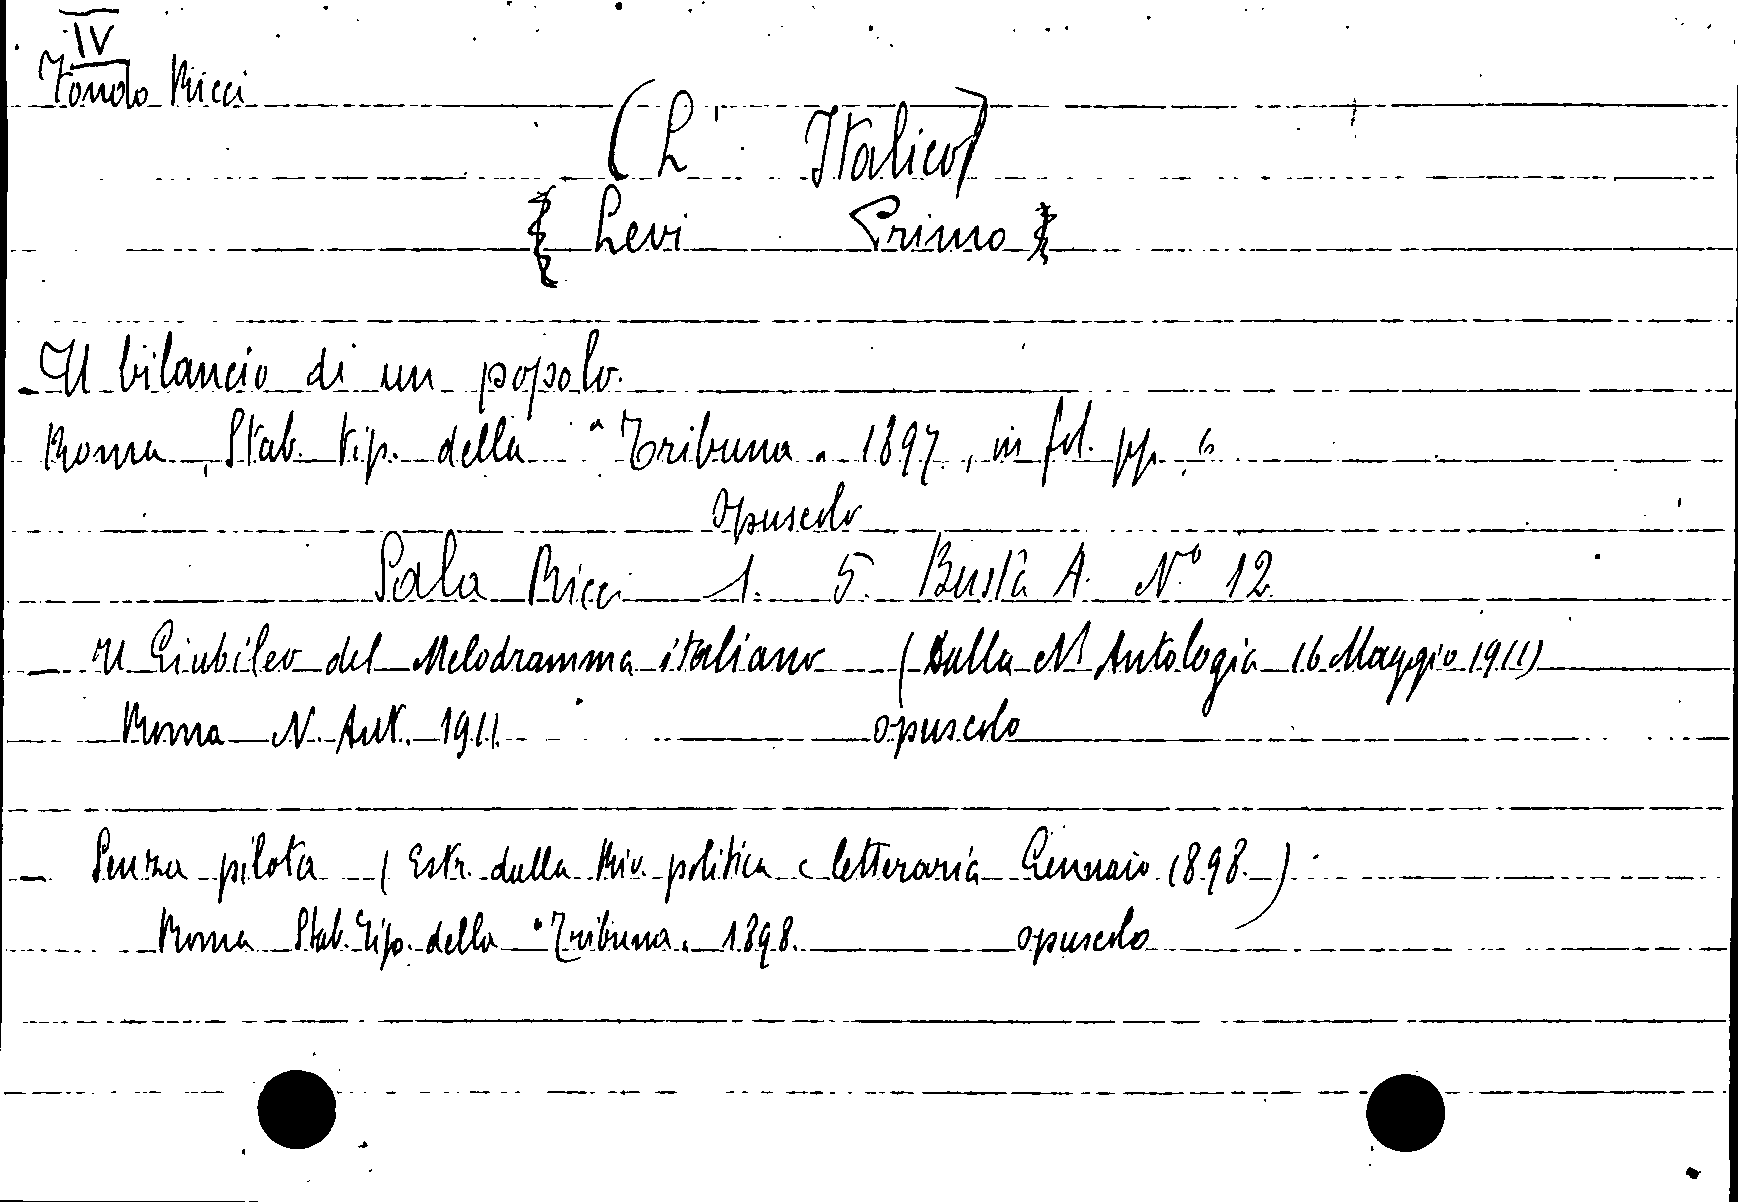 IV
Fondo Ricci
(L' Italico)
Levi Primo
- Il bilancio di un popolo.
Roma, Stab. tip. della "Tribuna" 1897, in fol. pp. 6
Opuscolo
Sala Ricci 1. 5. Busta A. N.º 12
- Il Giubileo del Melodramma italiano (Dalla N. Antologia 16 Maggio 1911)
Roma N. Ant. 1911. opuscolo
- Senza pilota (Estr. dalla Riv. politica e letteraria Gennaio 1898.)
Roma Stab. Tip. della "Tribuna" 1898. opuscolo